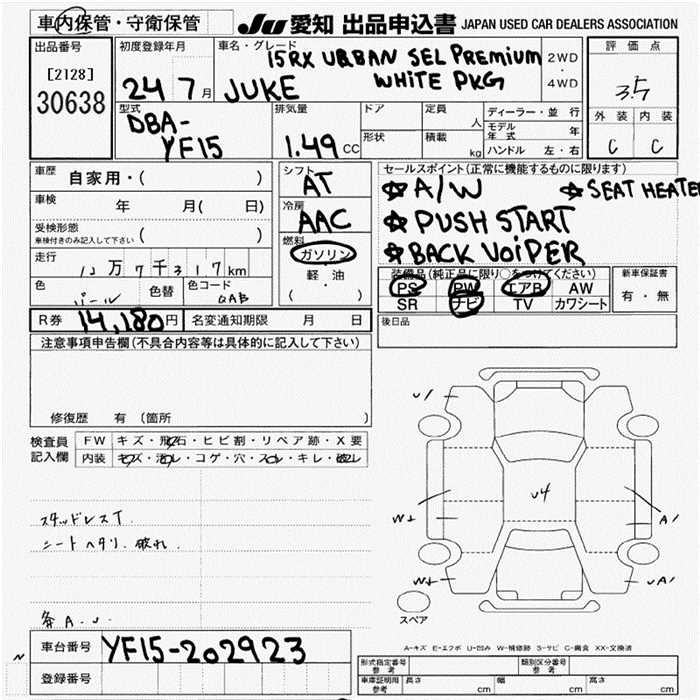 車内保管・守衛保管
JU 愛知 出品申込書 JAPAN USED CAR DEALERS ASSOCIATION
出品番号
[2128]
30638
初度登録年月
24 7月
車名・グレード
15RX URBAN SEL PREMIUM
JUKE WHITE PKG
2WD
・
4WD
評価点
3.5
外装 内装
C C
型式
DBA-
YF15
排気量
1.49 CC
ドア
形状
定員 人
積載 kg
ディーラー・並行
モデル年式 年
ハンドル 左・右
車歴 自家用・( )
車検 年 月( 日)
受検形態
車検付きのみ記入して下さい ( )
走行 12万7千317km
色 パール 色替 色コード QAB
シフト
AT
冷房
AAC
燃料
ガソリン
軽・油
( ・ )
セールスポイント(正常に機能するものに限ります)
☆ A/W ☆ SEAT HEATER
☆ PUSH START
☆ BACK VOiPER
装備品(純正品に限り○をつけてください)
PS PW エアB AW
SR ナビ TV カワシート
新車保証書
有・無
R券 14,180円 名変通知期限 月 日
後日品
注意事項申告欄(不具合内容等は具体的に記入して下さい)
修復歴 有 (箇所
検査員
記入欄
FW キズ・飛石・ヒビ割・リペア跡・X要
内装 キズ・汚れ・コゲ・穴・スレ・キレ・破レ
スタッドレスT
シートヘタリ、破れ.
U/
U4
W+ A/
W+ UA/
スペア
A-キズ E-エクボ U-凹み W-補修跡 S-サビ C-腐食 XX-交換済
車台番号 YF15-202923
登録番号
型式指定番号
参考
類別区分番号
参考
車庫証明用
参考
長さ cm 幅 cm 高さ cm